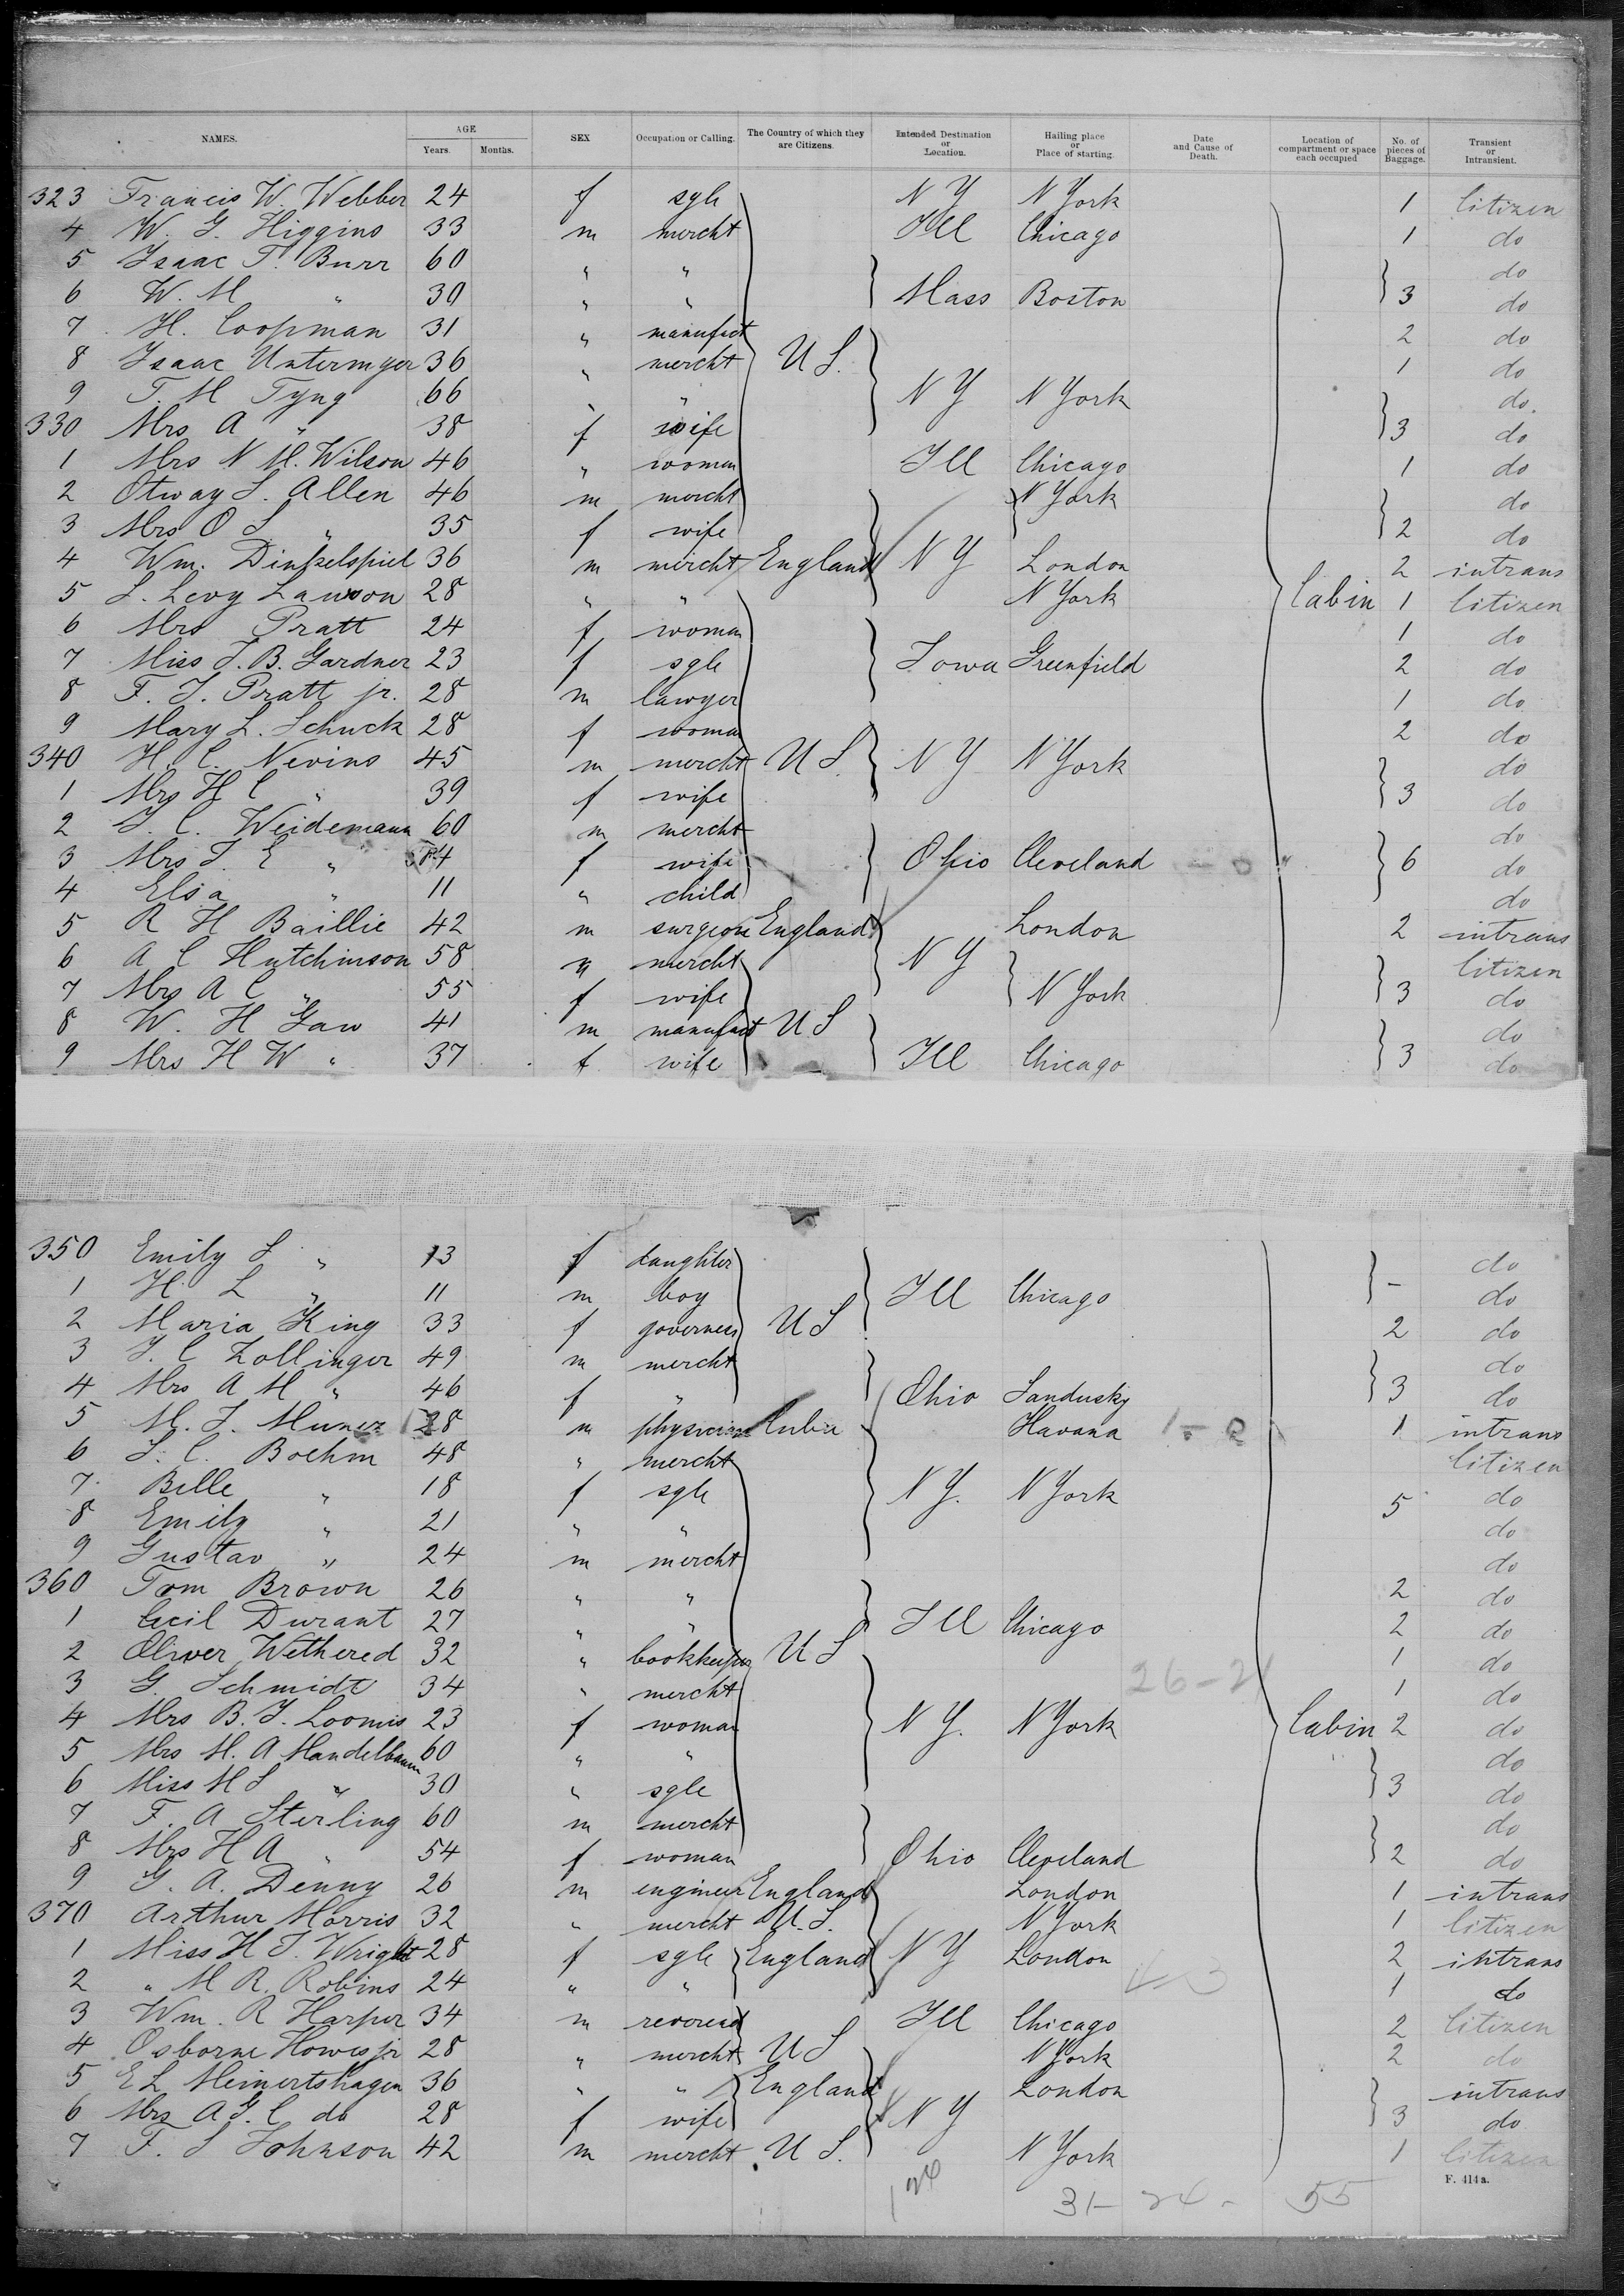 NAMES. AGE Years. Months. SEX Occupation or Calling. The Country of which they are Citizens. Intended Destination or Location. Hailing place or Place of starting. Date and Cause of Death. Location of compartment or space each occupied No. of pieces of Baggage. Transient or Intransient.
323 Francis W. Webber 24 f sgle N Y N York 1 Citizen
4 W. G. Higgins 33 m mercht Ill Chicago 1 do
5 Isaac T. Burr 60 " " do
6 W. M " 30 " " Mass Boston 3 do
7 H. Coopman 31 " manufact 2 do
8 Isaac Untermyer 36 " mercht U S. 1 do
9 T. M Tyng 66 " " N Y N York do
330 Mrs A " 38 f wife 3 do
1 Mrs N M. Wilson 46 " woman Ill Chicago 1 do
2 Otway S. Allen 46 m mercht N York do
3 Mrs O S " 35 f wife 2 do
4 Wm. Dinkelspiel 36 m mercht England N Y London 2 intrans
5 L. Levy Lawson 28 " " N York Cabin 1 Citizen
6 Mrs Pratt 24 f woman 1 do
7 Miss J. B. Gardner 23 f sgle Iowa Greenfield 2 do
8 F. J. Pratt jr. 28 m lawyer 1 do
9 Mary L. Schuck 28 f woman 2 do
340 H. C. Nevins 45 m mercht U S. N Y N York do
1 Mrs H C " 39 f wife 3 do
2 J. C. Weidemann 60 m mercht do
3 Mrs J. E " 54 f wife Ohio Cleveland 6 do
4 Elsa " 11 " child do
5 R H Baillie 42 m surgeon England London 2 intrans
6 A C Hutchinson 58 m mercht N Y Citizen
7 Mrs A C " 55 f wife N York 3 do
8 W. H Gaw 41 m manufact U S do
9 Mrs H W " 37 f wife Ill Chicago 3 do
350 Emily L " 13 f daughter do
1 H. L " 11 m boy Ill Chicago - do
2 Maria King 33 f governess U S 2 do
3 J. C Zollinger 49 m mercht do
4 Mrs A M " 46 f " Ohio Sandusky 3 do
5 M. J. Munez 28 m physician Cuba Havana 1 intrans
6 S. C. Boehm 48 " mercht Citizen
7 Belle " 18 f sgle N Y. N York 5 do
8 Emily " 21 " " do
9 Gustav " 24 m mercht do
360 Tom Brown 26 " " 2 do
1 Cecil Durant 27 " " Ill Chicago 2 do
2 Oliver Wethered 32 " bookkeeper U S 1 do
3 G. Schmidt 34 " mercht 26-21 1 do
4 Mrs B. J. Loomis 23 f woman N Y. N York Cabin 2 do
5 Mrs M. A Mandelbaum 60 " " do
6 Miss M S " 30 " sgle 3 do
7 F. A Sterling 60 m mercht do
8 Mrs H A " 54 f woman Ohio Cleveland 2 do
9 G. A. Denny 26 m engineer England London 1 intrans
370 Arthur Morris 32 " mercht U. S. N York 1 Citizen
1 Miss H J. Wright 28 f sgle England N Y London 2 intrans
2 " M R. Robins 24 " " 1 do
3 Wm. R Harper 34 m reverend Ill Chicago 2 Citizen
4 Osborne Howes jr 28 " mercht U S N York 2 do
5 E L Meinertshagen 36 " " England London intrans
6 Mrs A G. C do 28 f wife N Y 3 do
7 F. S Johnson 42 m mercht U S. N York 1 Citizen
F. 414a.
31- 24- 55